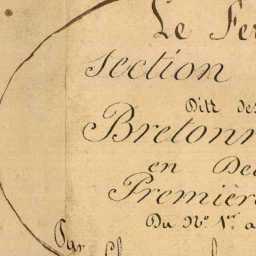 Le Fer
Section
Ditt des
Bretonn
en De
Première
Du Nº 1er a
Par